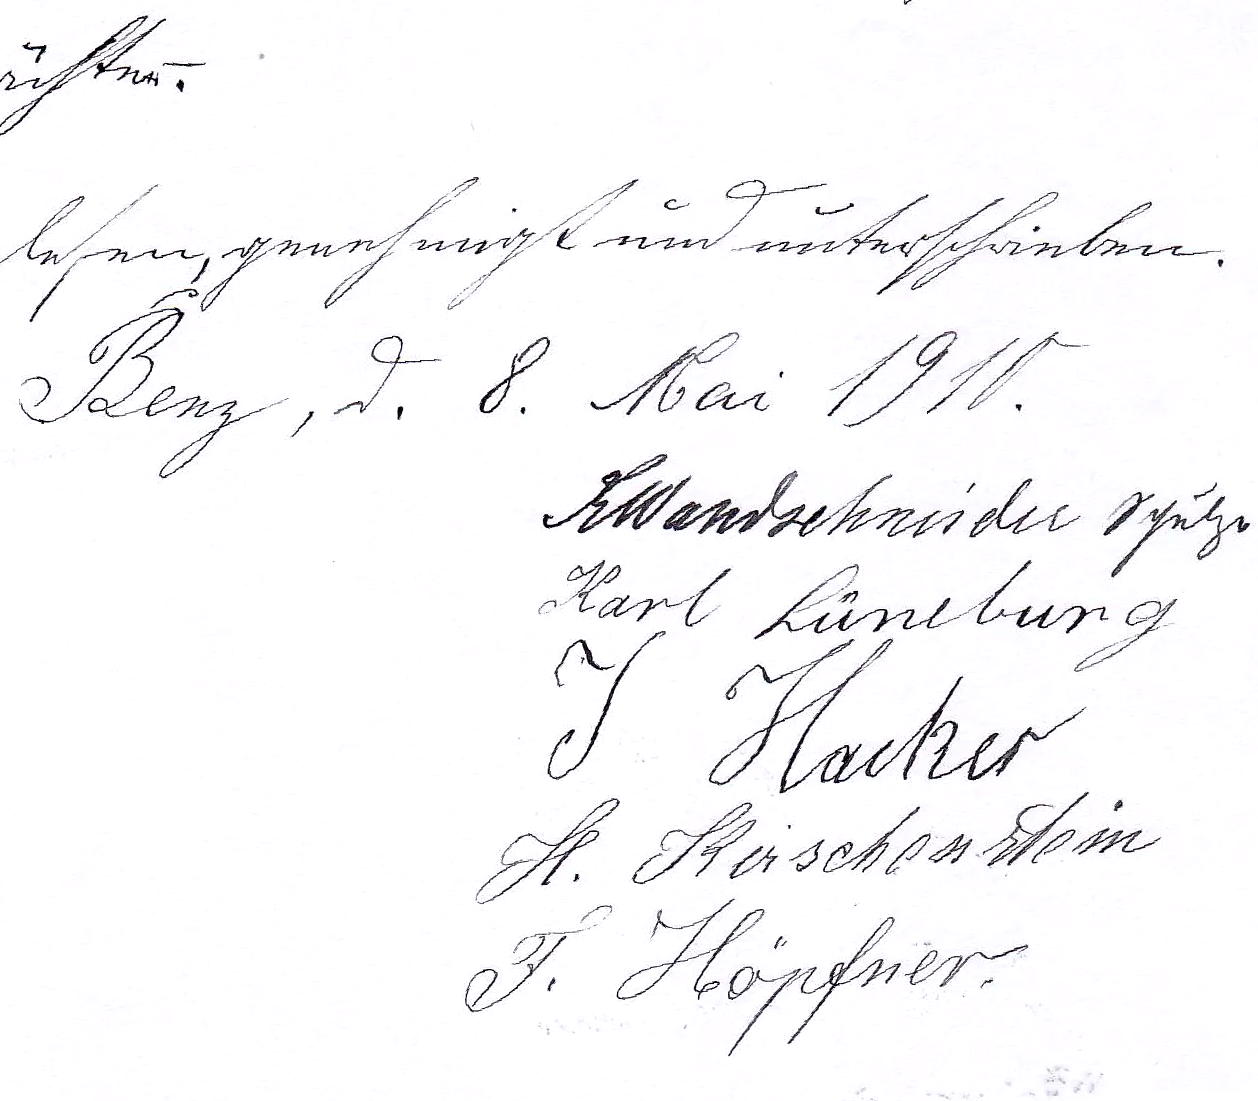 lesen, genehmigt und unterschrieben.
Benz, d. 8. Mai 1910.
KWandschneider Schulze
Karl Lüneburg
J Hacker
H. Kirschenstein
F. Höpfner.